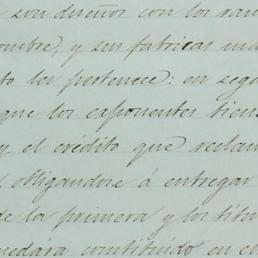 son dueños con los ran
ombre, y sus fabricas ma
to les pertenece: en seg
que los esponentes tien
y el crédito que reclam
obligandose á entregar
de la primera y los titu
uedára constituido en el